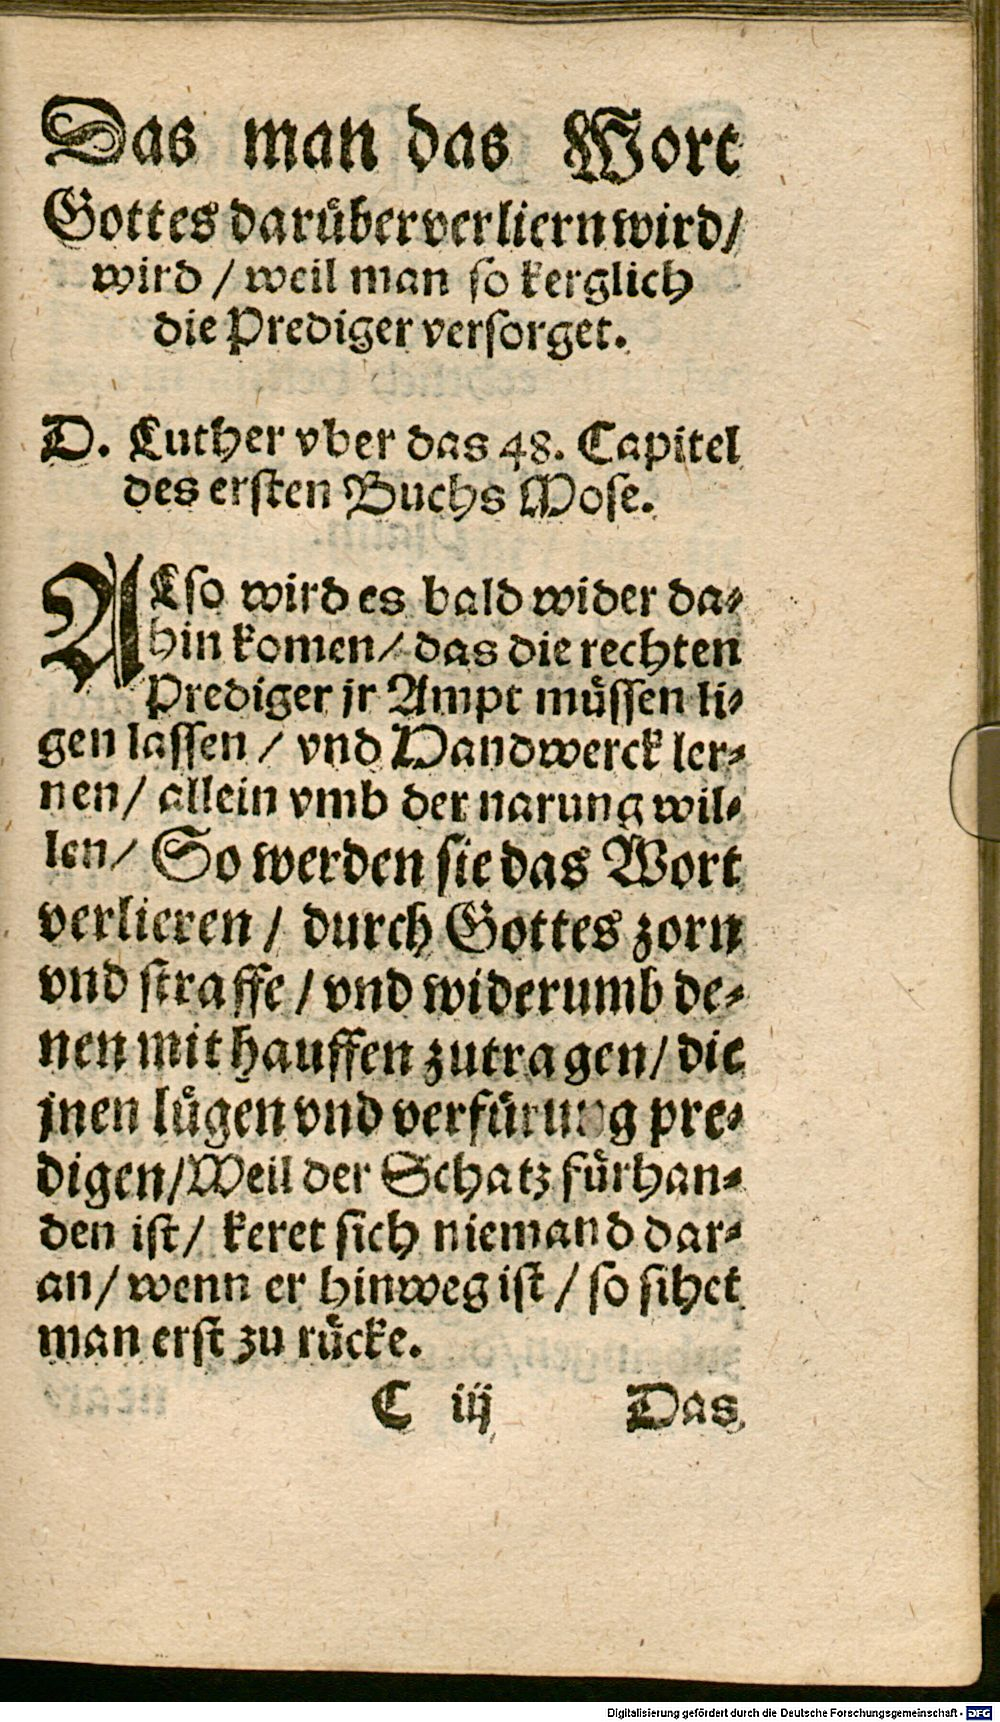 Das man das Wort
Gottes darüber verliern wird/
wird / weil man so kerglich
die Prediger versorget.
D. Luther vber das 48. Capitel
des ersten Buchs Mose.
ALso wird es bald wider da-
hin komen/ das die rechten
Prediger jr Ampt müssen li-
gen lassen / vnd Handwerck ler-
nen/ allein vmb der narung wil-
len/ So werden sie das Wort
verlieren / durch Gottes zorn
vnd straffe / vnd widerumb de-
nen mit hauffen zutragen/ die
jnen lügen vnd verfürung pre-
digen/ Weil der Schatz fürhan-
den ist/ keret sich niemand dar-
an/ wenn er hinweg ist / so sihet
man erst zu rücke.
C iij Das
Digitalisierung gefördert durch die Deutsche Forschungsgemeinschaft - DFG